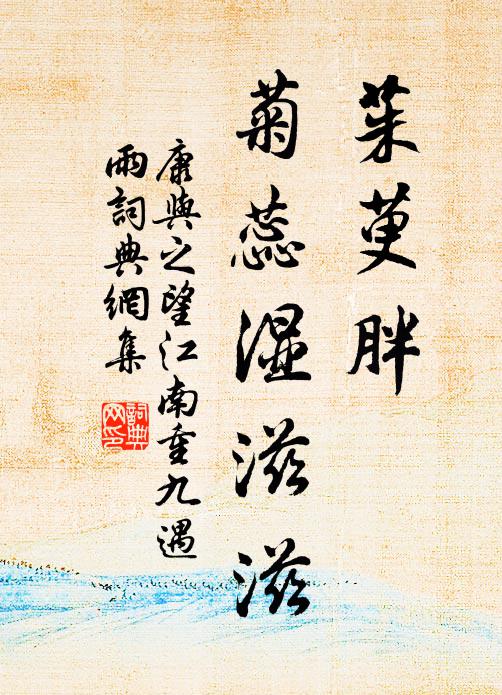 茱萸胖
菊蕊湿滋滋
康與之望江南重九遇
雨詞典網集
詞典
网印